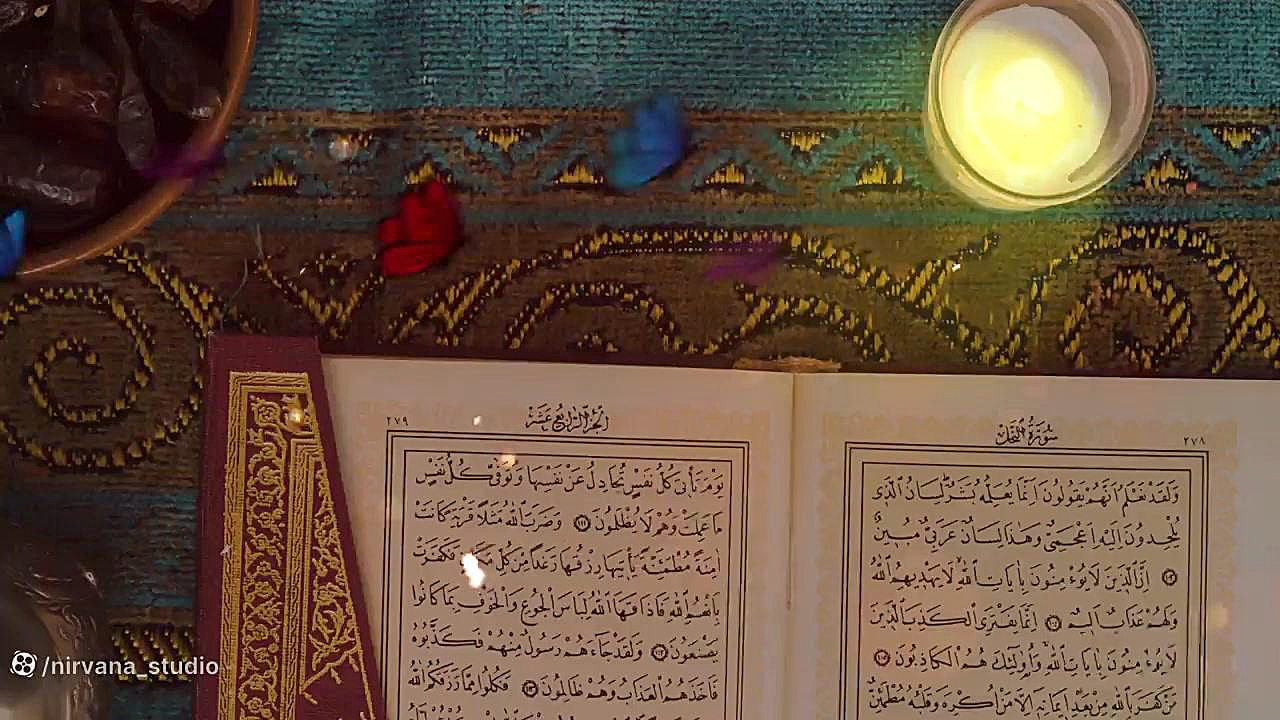 سُورَةُ النَّحْلِ ٢٧٨
وَلَقَدْ نَعْلَمُ اَنَّهُمْ يَقُولُونَ اِنَّمَا يُعَلِّمُهُ بَشَرٌ لِسَانُ الَّذِى
يُلْحِدُونَ اِلَيْهِ اَعْجَمِىٌّ وَهٰذَا لِسَانٌ عَرَبِىٌّ مُبِينٌ
١٠٣ اِنَّ الَّذِينَ لَا يُؤْمِنُونَ بِاٰيَاتِ اللّٰهِ لَا يَهْدِيهِمُ اللّٰهُ
وَلَهُمْ عَذَابٌ اَلِيمٌ ١٠٤ اِنَّمَا يَفْتَرِى الْكَذِبَ الَّذِينَ
لَا يُؤْمِنُونَ بِاٰيَاتِ اللّٰهِ وَاُولٰئِكَ هُمُ الْكَاذِبُونَ ١٠٥
مَنْ كَفَرَ بِاللّٰهِ مِنْ بَعْدِ اِيمَانِهِ اِلَّا مَنْ اُكْرِهَ وَقَلْبُهُ مُطْمَئِنٌّ
اَلْجُزْءُ الرَّابِعُ عَشَرَ ٢٧٩
يَوْمَ تَأْتِى كُلُّ نَفْسٍ تُجَادِلُ عَنْ نَفْسِهَا وَتُوَفّٰى كُلُّ نَفْسٍ
مَا عَمِلَتْ وَهُمْ لَا يُظْلَمُونَ ١١١ وَضَرَبَ اللّٰهُ مَثَلًا قَرْيَةً كَانَتْ
اٰمِنَةً مُطْمَئِنَّةً يَأْتِيهَا رِزْقُهَا رَغَدًا مِنْ كُلِّ مَكَانٍ فَكَفَرَتْ
بِاَنْعُمِ اللّٰهِ فَاَذَاقَهَا اللّٰهُ لِبَاسَ الْجُوعِ وَالْخَوْفِ بِمَا كَانُوا
يَصْنَعُونَ ١١٢ وَلَقَدْ جَاءَهُمْ رَسُولٌ مِنْهُمْ فَكَذَّبُوهُ
فَاَخَذَهُمُ الْعَذَابُ وَهُمْ ظَالِمُونَ ١١٣ فَكُلُوا مِمَّا رَزَقَكُمُ اللّٰهُ
/nirvana_studio